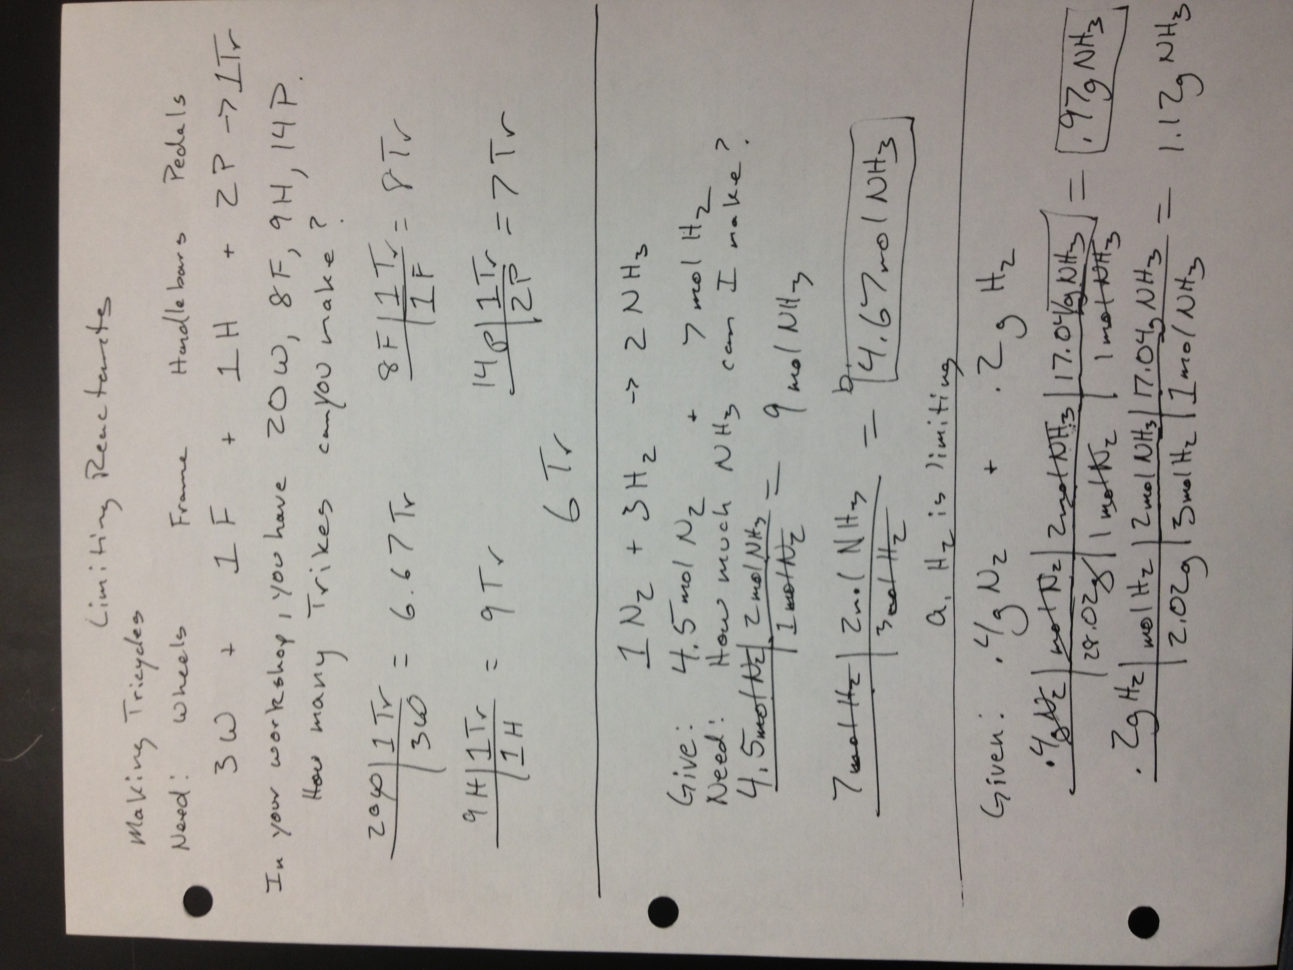 Limiting Reactants
Making Tricycles
Need: Wheels Frame Handlebars Pedals
3W + 1F + 1H + 2P → 1Tr
In your workshop, you have 20W, 8F, 9H, 14P.
How many Trikes can you make?
20W | 1Tr / 3W = 6.67Tr 8F | 1Tr / 1F = 8Tr
9H | 1Tr / 1H = 9Tr 14P | 1Tr / 2P = 7Tr
6Tr
1N₂ + 3H₂ → 2NH₃
Give: 4.5mol N₂ + 7mol H₂
Need: How much NH₃ can I make?
4.5mol N₂ | 2mol NH₃ / 1mol N₂ = 9 mol NH₃
7mol H₂ | 2mol NH₃ / 3mol H₂ = b. 4.67mol NH₃
a. H₂ is limiting
Given: .4g N₂ + .2g H₂
.4g N₂ | mol N₂ | 2mol NH₃ | 17.04g NH₃ / 28.02g | 1mol N₂ | 1mol NH₃ = .97g NH₃
.2g H₂ | mol H₂ | 2mol NH₃ | 17.04g NH₃ / 2.02g | 3mol H₂ | 1mol NH₃ = 1.12g NH₃